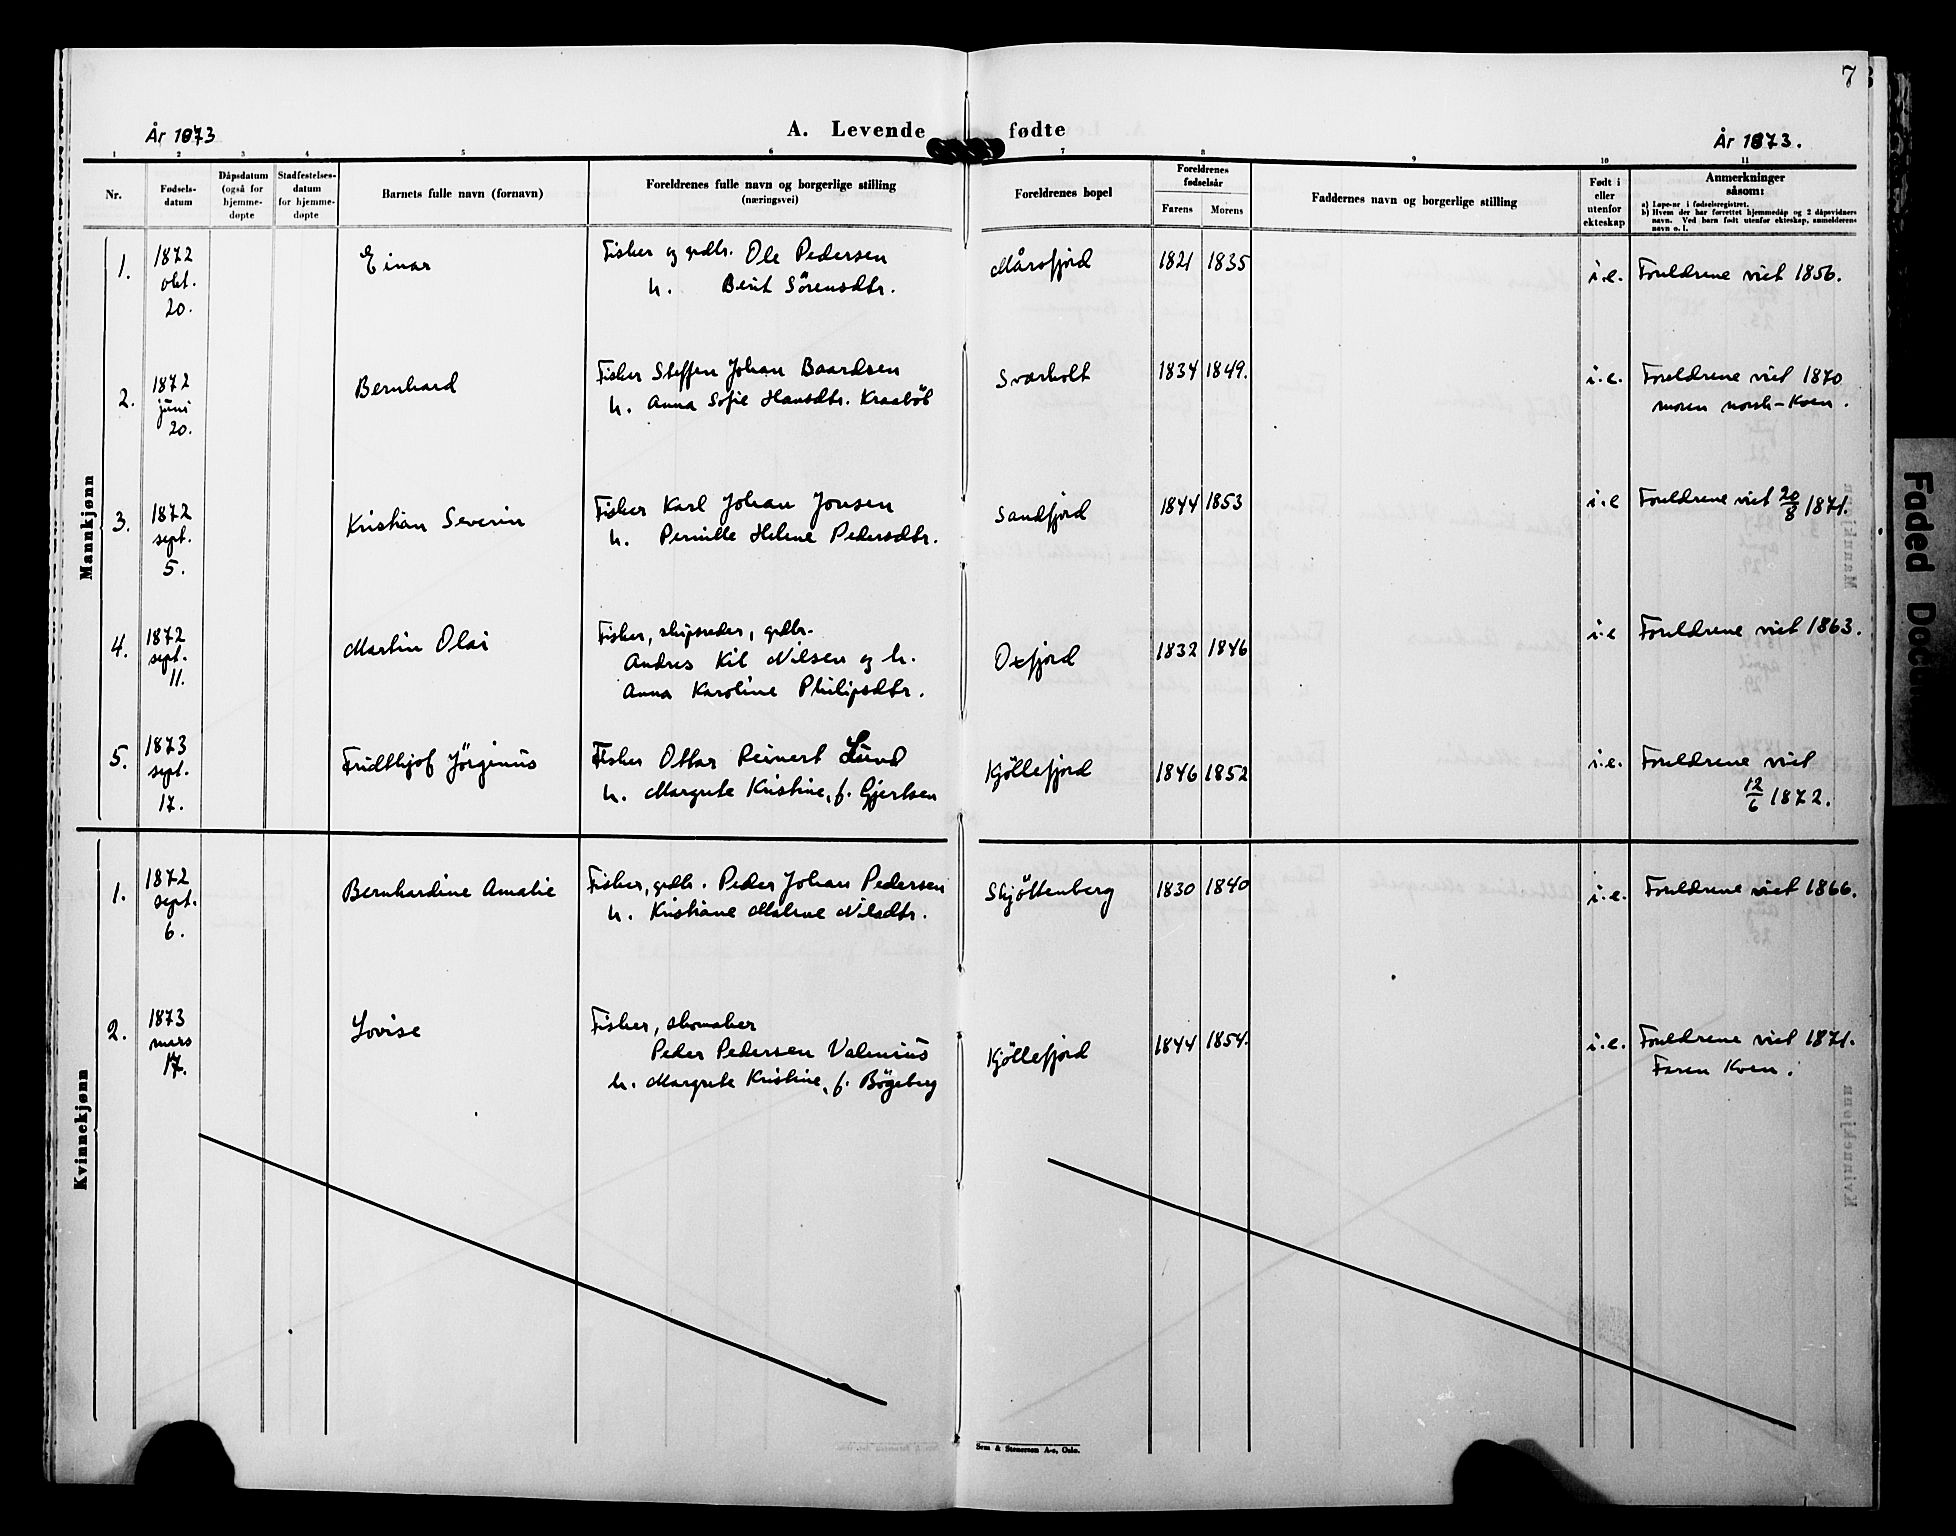 7
År 1873
A. Levende fødte
År 1873.
1 2 3 4 5 6 7 8 9 10 11
Nr.
Fødsels-
datum
Dåpsdatum
(også for
hjemme-
døpte
Stadfestelses-
datum
for hjemme-
døpte
Barnets fulle navn (fornavn)
Foreldrenes fulle navn og borgerlige stilling
(næringsvei)
Foreldrenes bopel
Foreldrenes
fødselsår
Farens Morens
Faddernes navn og borgerlige stilling
Født i
eller
utenfor
ekteskap
Anmerkninger
såsom:
a) Løpe-nr i fødselsregistret.
b) Hvem der har forrettet hjemmedåp og 2 dåpsvidners
navn. Ved barn født utenfor ekteskap, anmelderens
navn o. l.
Mannkjønn
1.
1872
okt.
20.
Einar
Fisker og grdbr. Ole Pedersen
h. Berit Sörensdtr.
Mårøfjord
1821 1835
i.e.
Foreldrene viet 1856.
2.
1872
juni
20.
Bernhard
Fisker Steffen Johan Baardsen
h. Anna Sofie Hansdtr. Kraaböl
Sværholt
1834 1849.
i.e.
Foreldrene viet 1870
moren norsk-Kven.
3.
1872
sept.
5.
Kristian Severin
Fisker Karl Johan Jonsen
h. Pernille Helene Pedersdtr.
Sandfjord
1844 1853
i.e
Foreldrene viet 20/8 1871.
4.
1872
sept.
11.
Martin Olai
Fisker, skipsreder, grdbr.
Andres Kil Nilsen og h.
Anna Karoline Philipsdtr.
Oxfjord
1832 1846
i.e
Foreldrene viet 1863.
5.
1873
sept.
17.
Fridthjof Jörginus
Fisker Ottar Reinert Lund
h. Margrete Kristine, f. Gjertsen
Kjöllefjord
1846 1852
i.e.
Foreldrene viet
12/6 1872.
Kvinnekjønn
1.
1872
sept.
6.
Bernhardine Amalie
Fisker, grdbr. Peder Johan Pedersen
h. Kristiane Malene Nilsdtr.
Skjöttenberg
1830 1840
i.e.
Foreldrene viet 1866.
2.
1873
mars
17.
Lovise
Fisker, skomaker
Peder Pedersen Valenius
h. Margrete Kristine, f. Bögeberg
Kjöllefjord
1844 1854.
i.e.
Foreldrene viet 1871.
Faren Kven.
Sem & Stenersen A-s, Oslo.
Faded